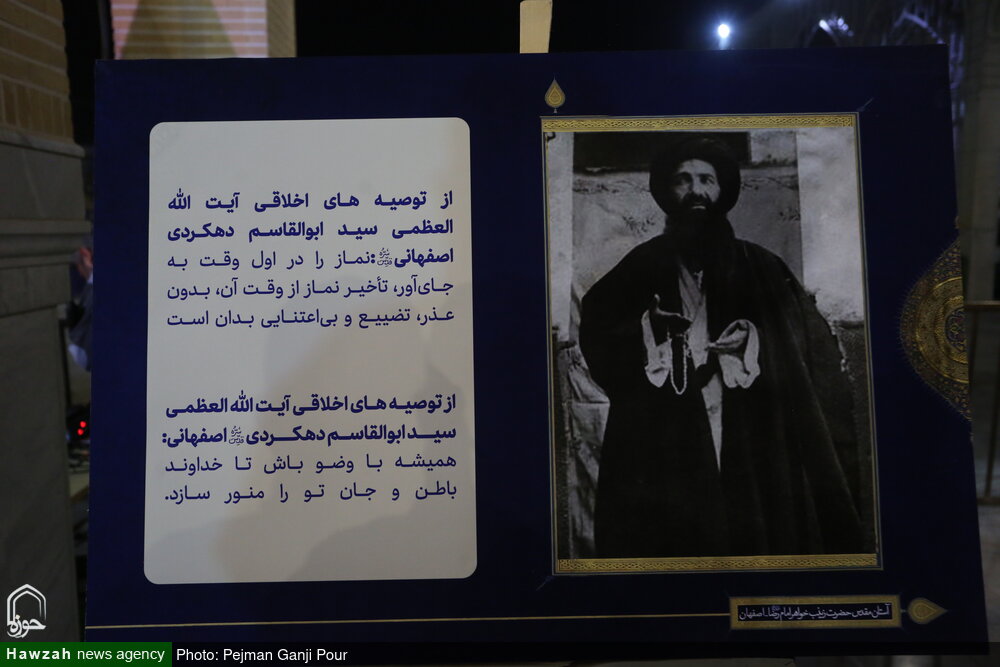 از توصیه های اخلاقی آیت الله
العظمی سید ابوالقاسم دهکردی
اصفهانی: نماز را در اول وقت به
جای‌آور، تأخیر نماز از وقت آن، بدون
عذر، تضییع و بی‌اعتنایی بدان است
از توصیه های اخلاقی آیت الله العظمی
سید ابوالقاسم دهکردی اصفهانی:
همیشه با وضو باش تا خداوند
باطن و جان تو را منور سازد.
آستان مقدس حضرت زینب خواهر امام رضا اصفهان
حوزه
Hawzah news agency Photo: Pejman Ganji Pour